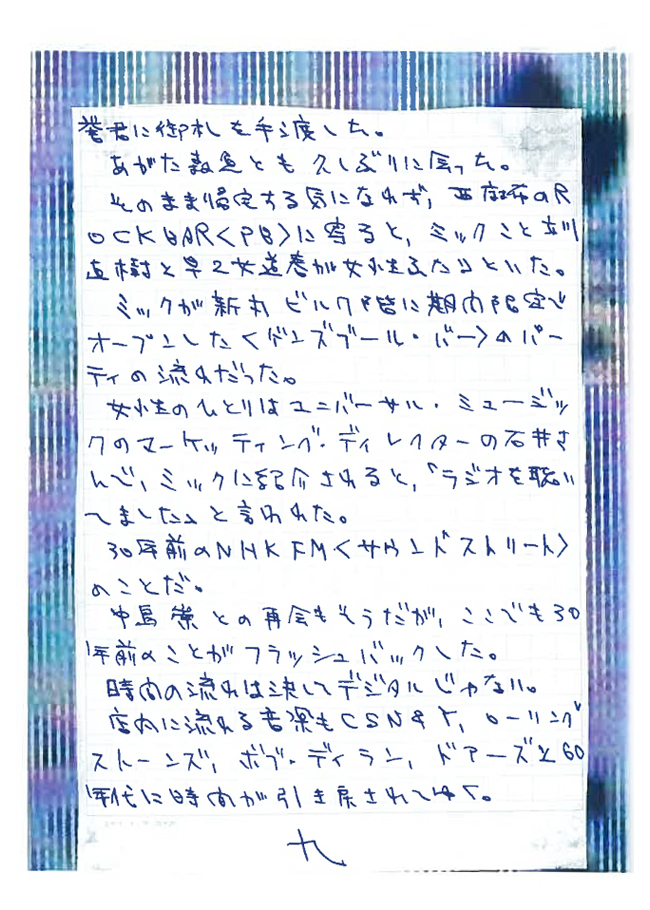 君に御札を手渡した。
あがた森魚とも久しぶりに会った。
そのまま帰宅する気になれず、西麻布のR
OCKBAR<PB>に寄ると、ミックこと立川
直樹と早乙女道春が女性ふたりといた。
ミックが新丸ビル7階に期間限定で
オープンした<ゲンズブール・バー>のパー
ティの流れだった。
女性のひとりはユニバーサル・ミュージッ
クのマーケッティング・ディレクターの石井さ
んで、ミックに紹介されると、「ラジオを聴い
てました」と言われた。
30年前のNHKFM<サウンドストリート>
のことだ。
中島 崇との再会もそうだが、ここでも30
年前のことがフラッシュバックした。
時間の流れは決してデジタルじゃない。
店内に流れる音楽もCSN&Y、ローリング
ストーンズ、ボブ・ディラン、ドアーズと60
年代に時間が引き戻されてゆく。